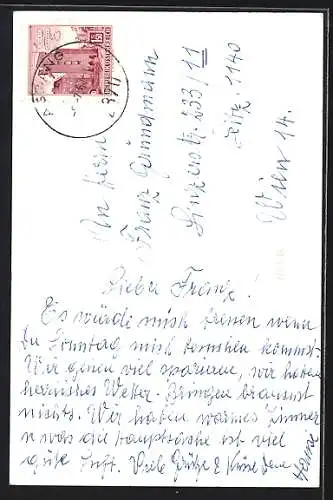 An Herrn
Franz Grundmann
Linzerstr. 233/11
1140
Wien 14.
Lieber Franz!
Es würde mich freuen wenn
Du Sonntag mich besuchen kommst.
Wir gehen viel spazieren, wir haben
herrliches Wetter. Bringen brauchst
nichts. Wir haben warmes Zimmer
u was die Hauptsache ist viel
gute Luft. Viele Grüße & Küsse Deine